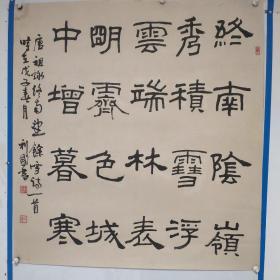 終南陰嶺
秀積雪浮
雲端林表
明霽色城
中增暮寒
唐祖詠終南望餘雪詩一首
時在戊子春月
利國書